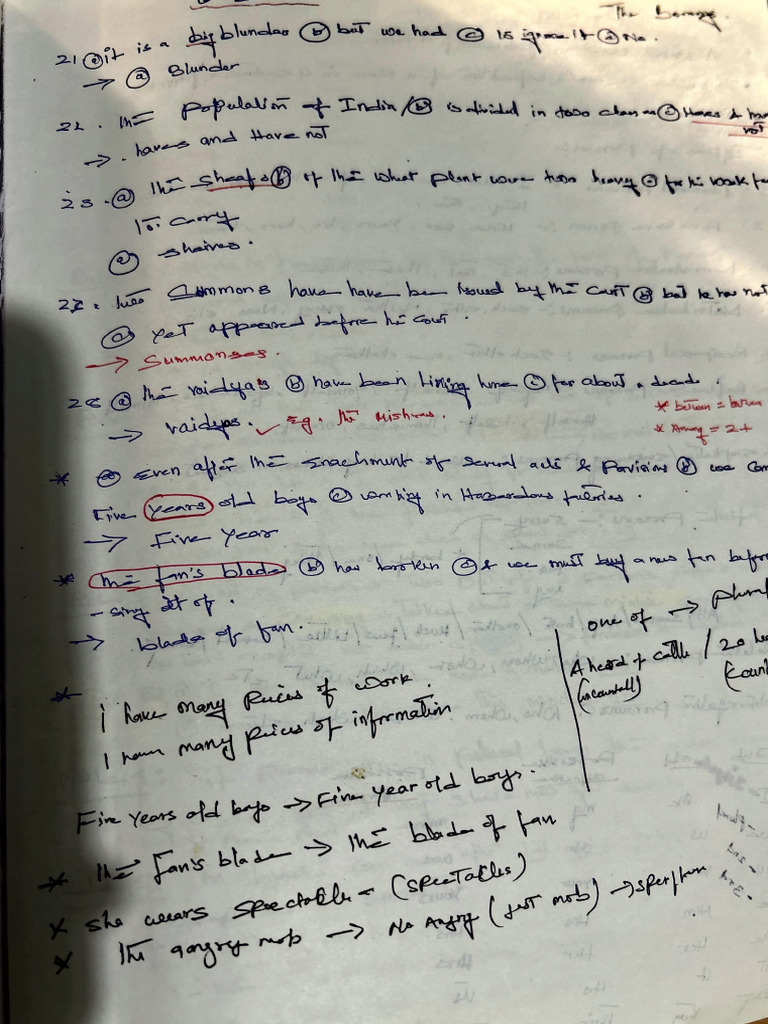 The Barage.
21 (a) it is a big blunder (b) but we had (c) to ignore it (d) No.
→ (a) Blunder
22. The population of India / (b) is divided in two classes (c) Haves & have
not
→ haves and Have not
23. (a) The sheafs (b) of the wheat plant were too heavy (c) for the
to carry
(a) sheaves.
Summons have have been issued by the court (b) but he has not
(a) yet appeared before the court.
→ Summonses.
(a) the vaidya's (b) have been living here (c) for about a decade.
→ vaidyas. ✓ Eg. The Mishras.
* between = between
* Among = 2+
* (a) Even after the enachment of several acts & Provisions (b) we can
Five years old boys (c) working in Hazardous
→ Five year
* The fan's blade (b) has broken (c) & we must buy a new fan before
- sing
→ blade of fan.
one of → plural
A heard of cattle / 20
(uncountable) (count
* I have many pieces of work.
I have many pieces of information
Five years old boys → Five year old boys.
* The Fan's blade → The blade of fan
* she wears spectacle - (spectacles)
* The angry mob → No Angry (just mob) →